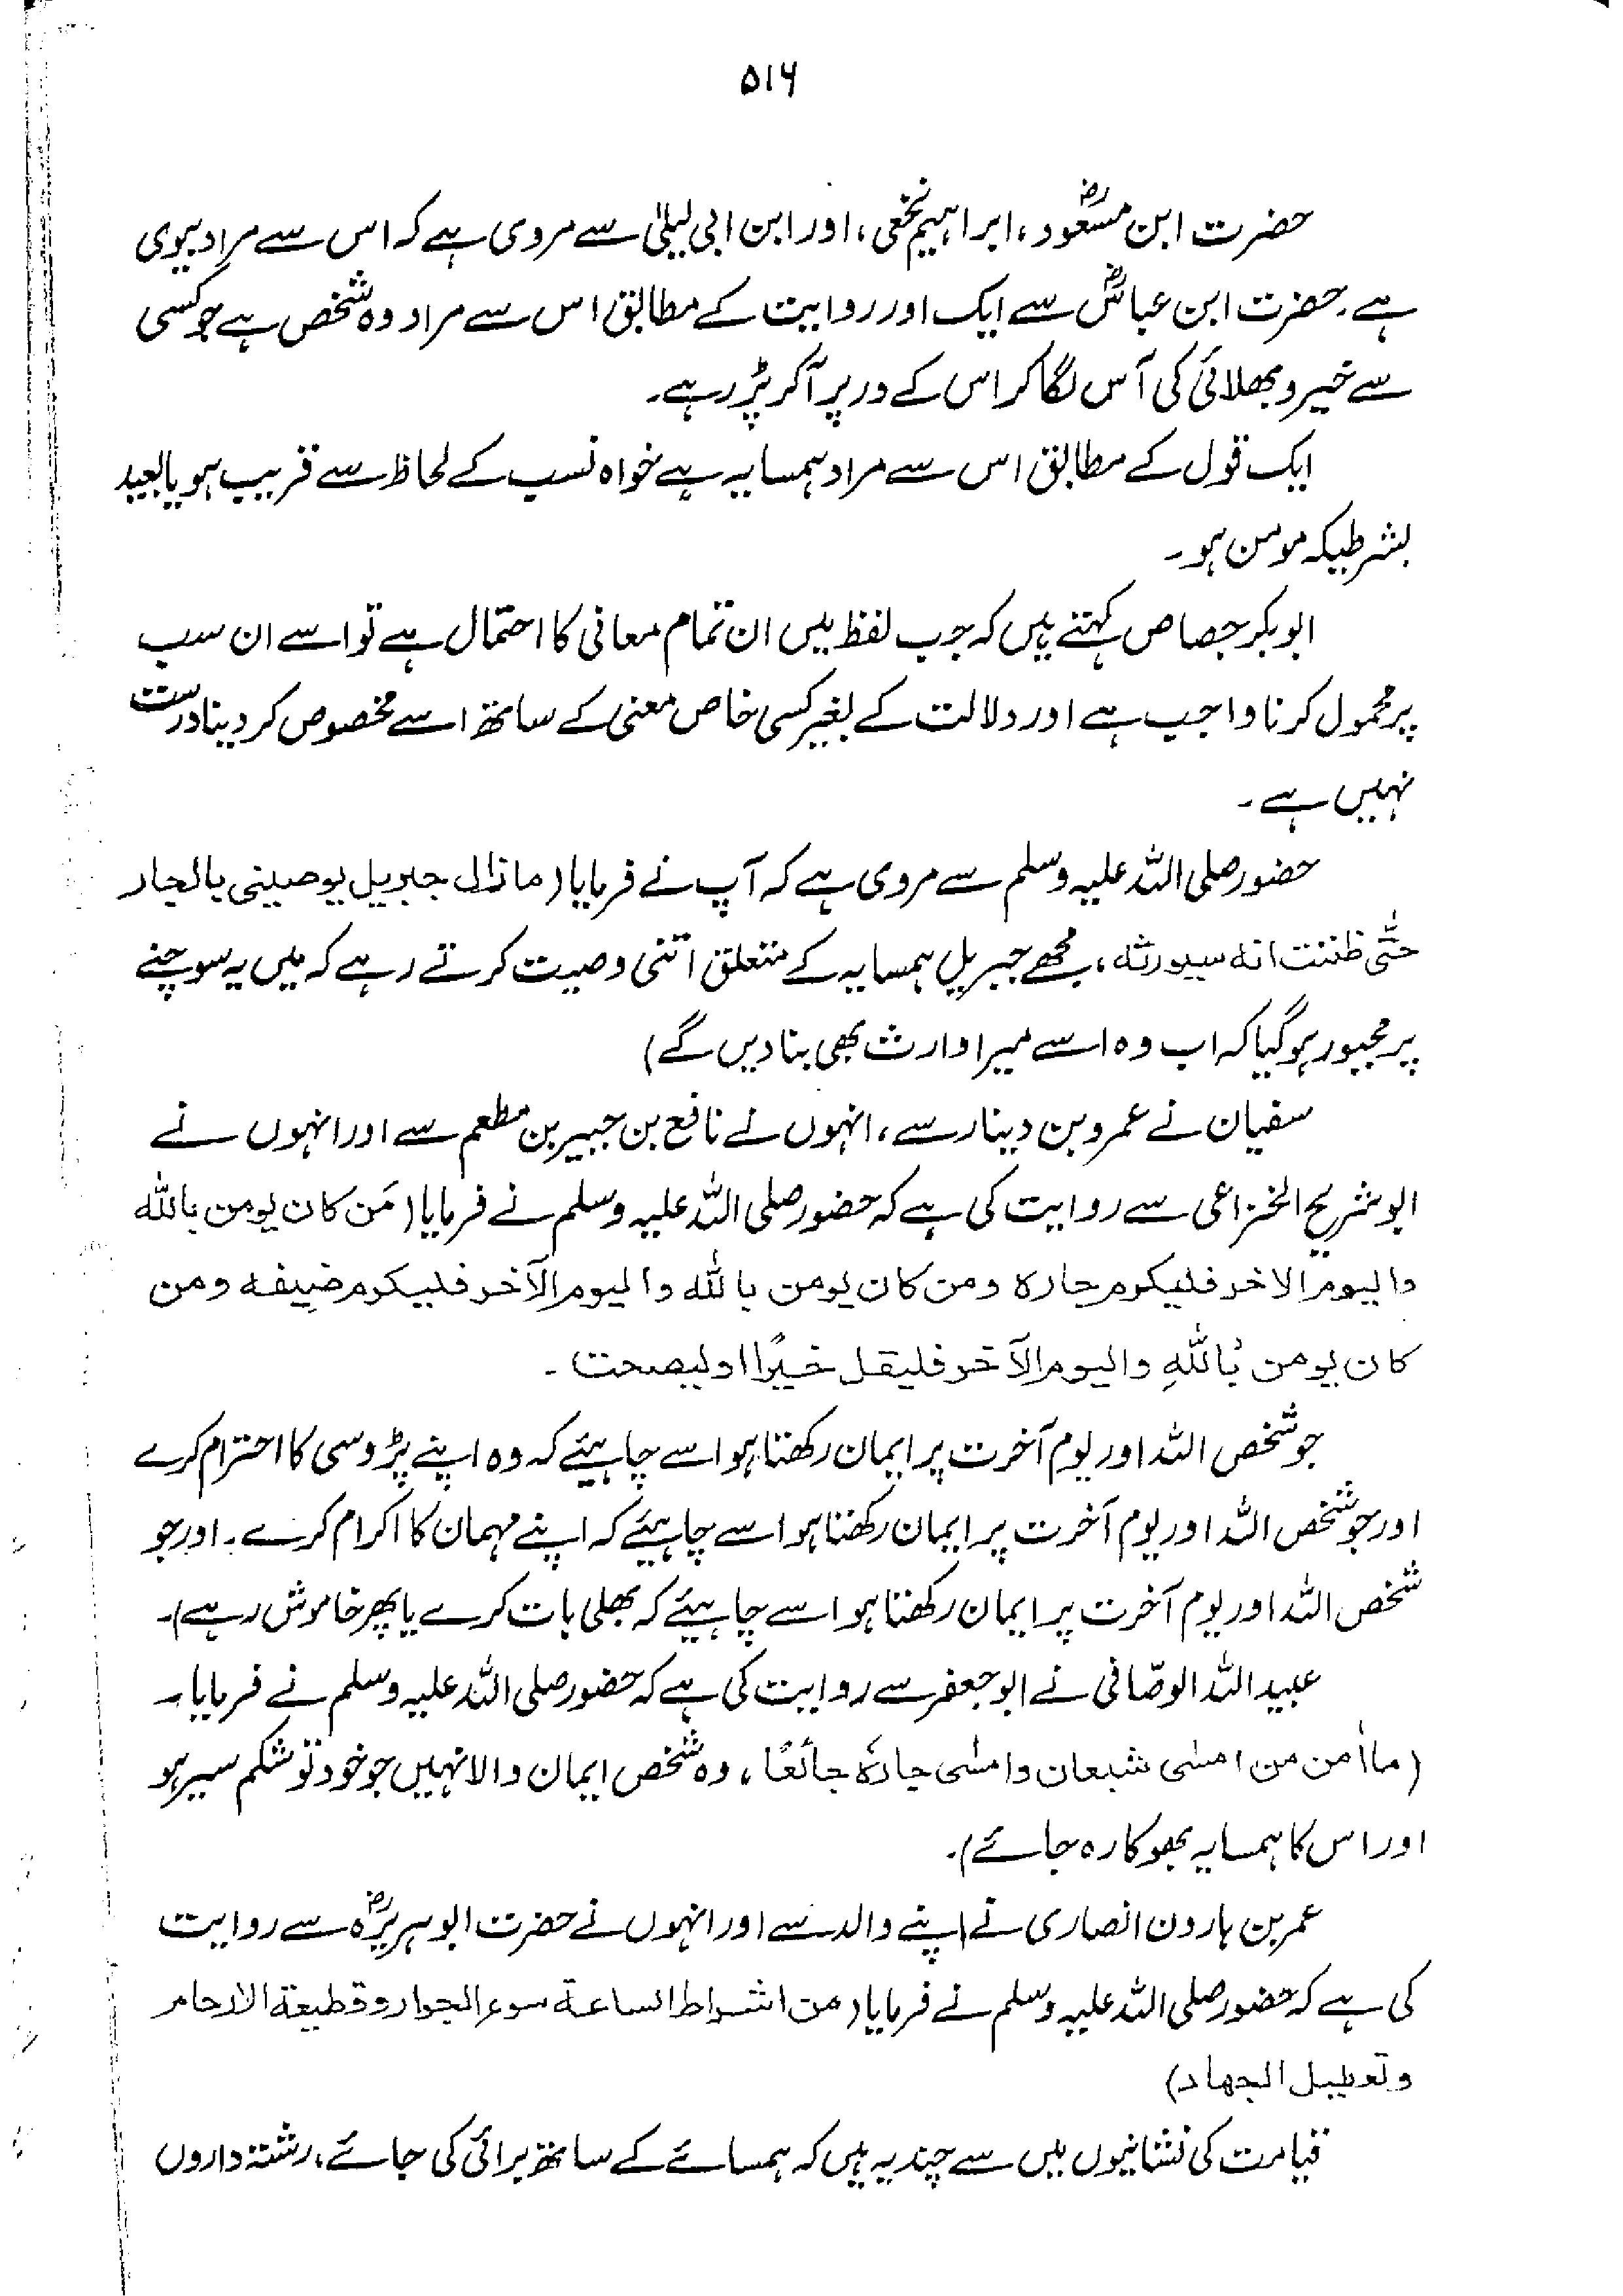 ۵۱۶
حضرت ابن مسعودؓ، ابراہیم نخعی، اور ابن ابی لیلیٰ سے مروی ہے کہ اس سے مراد بیوی
ہے۔ حضرت ابن عباسؓ سے ایک اور روایت کے مطابق اس سے مراد وہ شخص ہے جو کسی
سے خیر و بھلائی کی آس لگا کر اس کے در پر آ کر پڑ رہے۔
ایک قول کے مطابق اس سے مراد ہمسایہ ہے خواہ نسب کے لحاظ سے قریب ہو یا بعید
بشرطیکہ مومن ہو۔
ابوبکر جصاص کہتے ہیں کہ جب لفظ میں ان تمام معانی کا احتمال ہے تو اسے ان سب
پر محمول کرنا واجب ہے اور دلالت کے بغیر کسی خاص معنی کے ساتھ اسے مخصوص کر دینا درست
نہیں ہے۔
حضور صلی اللہ علیہ وسلم سے مروی ہے کہ آپ نے فرمایا (مازال جبریل یوصینی بالجار
حتّٰی ظننت انه سیورثه، مجھے جبریل ہمسایہ کے متعلق اتنی وصیت کرتے رہے کہ میں یہ سوچنے
پر مجبور ہو گیا کہ اب وہ اسے میرا وارث بھی بنا دیں گے)
سفیان نے عمرو بن دینار سے، انہوں نے نافع بن جبیر بن مطعم سے اور انہوں نے
ابو شریح الخزاعی سے روایت کی ہے کہ حضور صلی اللہ علیہ وسلم نے فرمایا (مَن کان یومن باللّٰه
والیوم الاخر فلیکرم جاره ومن کان یومن باللّٰه والیوم الآخر فلیکرم ضیفه ومن
کان یومن باللّٰهِ والیوم الآخر فلیقل خیرًا اولیصمت)۔
جو شخص اللہ اور یوم آخرت پر ایمان رکھتا ہو اسے چاہیئے کہ وہ اپنے پڑوسی کا احترام کرے
اور جو شخص اللہ اور یوم آخرت پر ایمان رکھتا ہو اسے چاہیئے کہ اپنے مہمان کا اکرام کرے۔ اور جو
شخص اللہ اور یوم آخرت پر ایمان رکھتا ہو اسے چاہیئے کہ بھلی بات کرے یا پھر خاموش رہے)۔
عبید اللہ الوصّافی نے ابو جعفر سے روایت کی ہے کہ حضور صلی اللہ علیہ وسلم نے فرمایا۔
(ما اٰمن من امسٰی شبعان وامسٰی جارہٗ جائعًا، وہ شخص ایمان والا نہیں جو خود تو شکم سیر ہو
اور اس کا ہمسایہ بھوکا رہ جائے)۔
عمر بن ہارون انصاری نے اپنے والد سے اور انہوں نے حضرت ابو ہریرہؓ سے روایت
کی ہے کہ حضور صلی اللہ علیہ وسلم نے فرمایا (من اشراط الساعة سوء الجوار وقطیعة الارحام
وتعطیل الجهاد)
قیامت کی نشانیوں میں سے چند یہ ہیں کہ ہمسائے کے ساتھ برائی کی جائے، رشتہ داروں